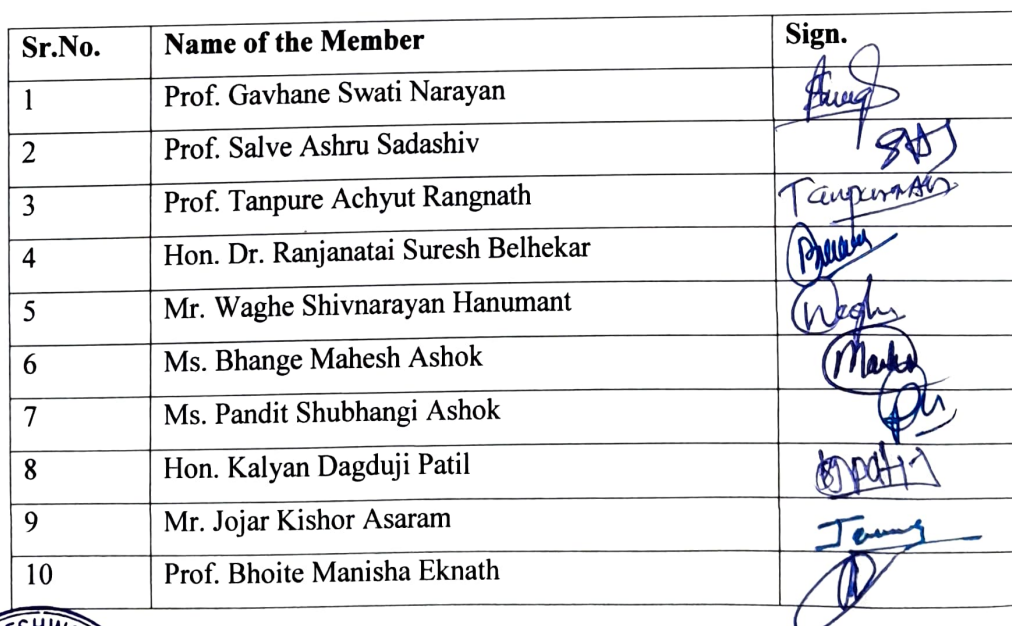 Sr.No. Name of the Member Sign.
1 Prof. Gavhane Swati Narayan
2 Prof. Salve Ashru Sadashiv
3 Prof. Tanpure Achyut Rangnath
4 Hon. Dr. Ranjanatai Suresh Belhekar
5 Mr. Waghe Shivnarayan Hanumant
6 Ms. Bhange Mahesh Ashok
7 Ms. Pandit Shubhangi Ashok
8 Hon. Kalyan Dagduji Patil
9 Mr. Jojar Kishor Asaram
10 Prof. Bhoite Manisha Eknath